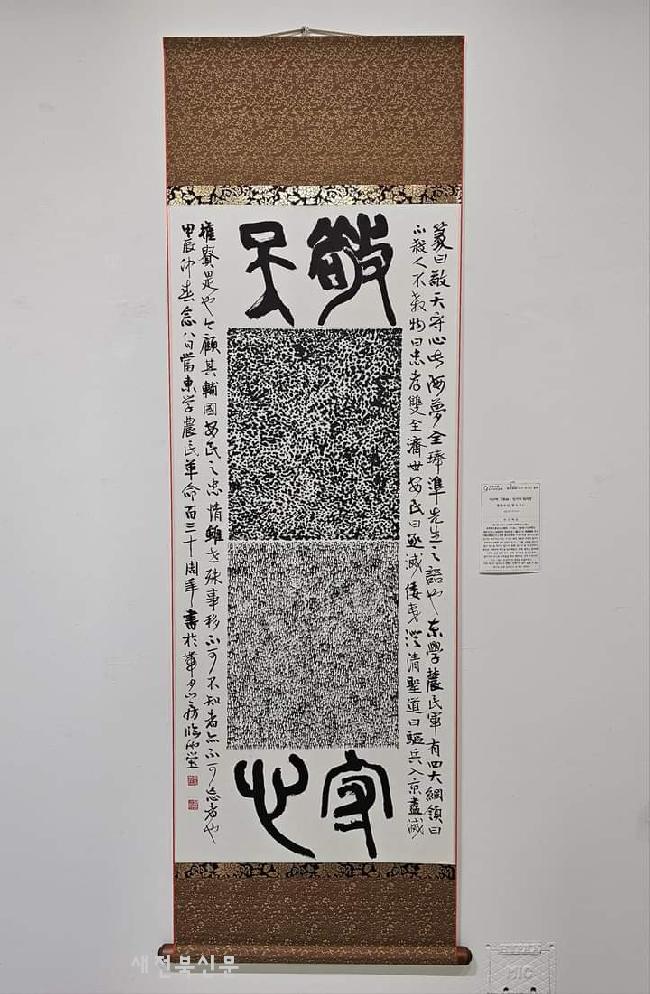 篆曰敬天守心此海夢全琫準先生之語也东學農民軍有四大綱領曰
不殺人不殺物曰忠孝雙全濟世安民曰逐滅倭夷澄清聖道曰驅兵入京盡滅
敬天
守心
權貴是也今顧其輔國安民之忠情雖世殊事移不可不知者亦不可忘者也
甲辰仲春念八日當東学農民革命百三十周年書於
새전북신문